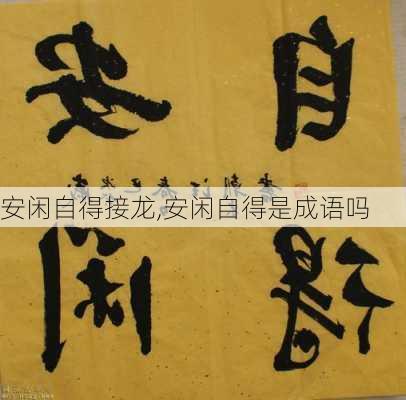 安闲
自得
安闲自得接龙,安闲自得是成语吗